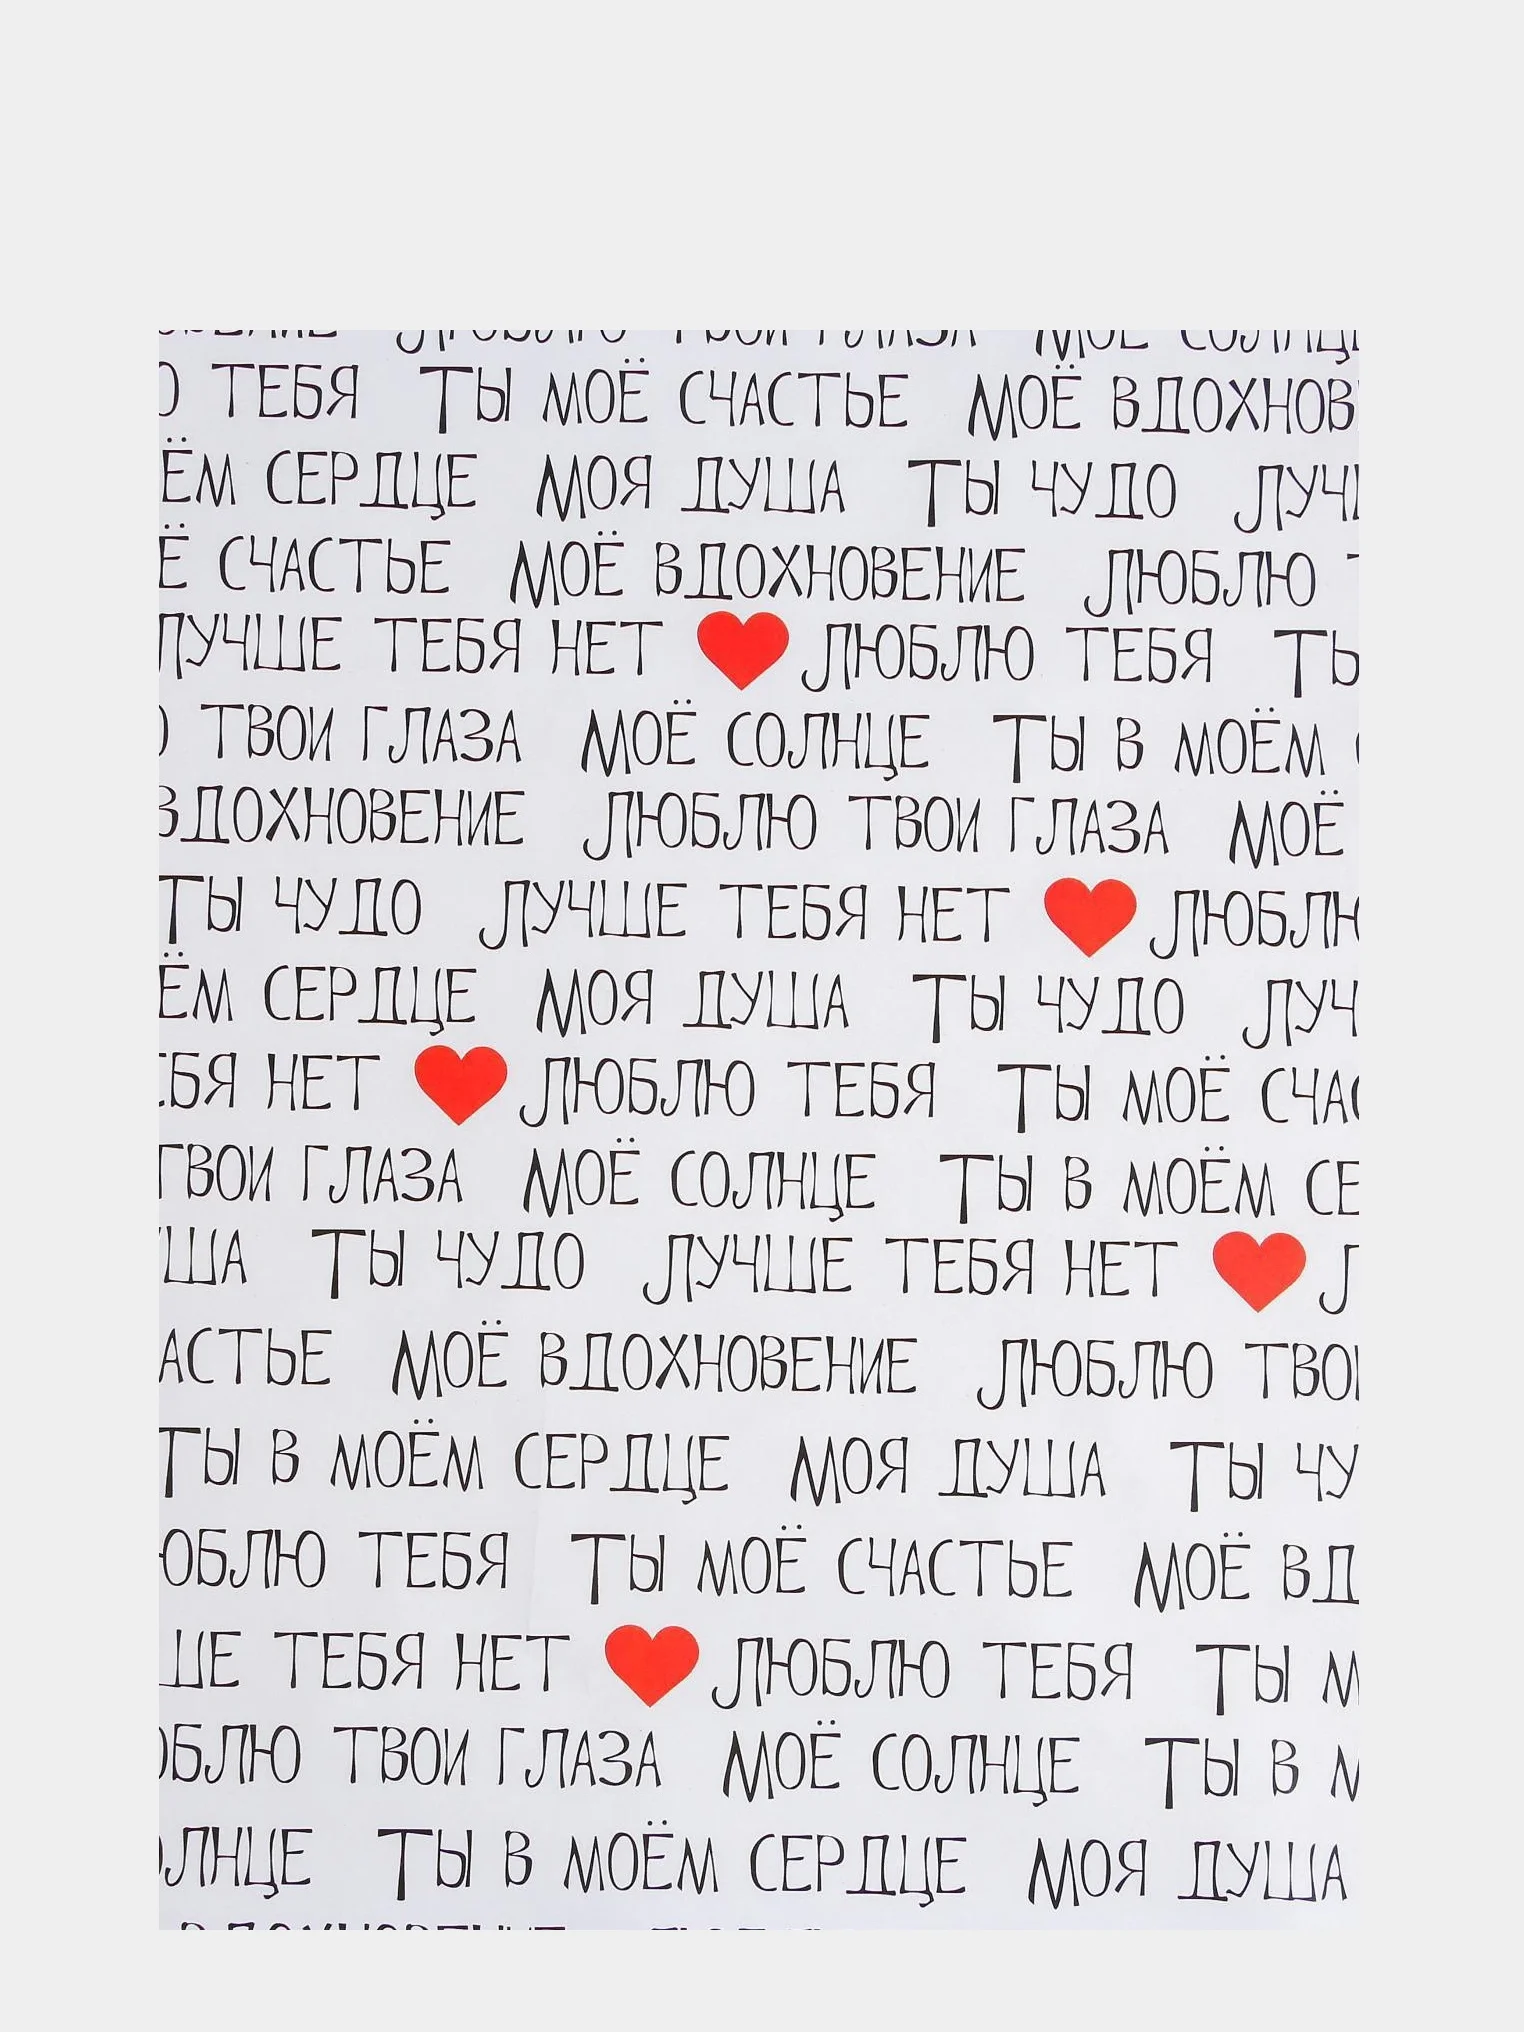 ЛЮБЛЮ ТВОИ ГЛАЗА МОЁ СОЛНЦЕ
ТЕБЯ ТЫ МОЁ СЧАСТЬЕ МОЁ ВДОХНОВ
ЁМ СЕРДЦЕ МОЯ ДУША ТЫ ЧУДО ЛУЧ
Ё СЧАСТЬЕ МОЁ ВДОХНОВЕНИЕ ЛЮБЛЮ
ЛУЧШЕ ТЕБЯ НЕТ ЛЮБЛЮ ТЕБЯ ТЫ
ТВОИ ГЛАЗА МОЁ СОЛНЦЕ ТЫ В МОЁМ
ВДОХНОВЕНИЕ ЛЮБЛЮ ТВОИ ГЛАЗА МОЁ
ТЫ ЧУДО ЛУЧШЕ ТЕБЯ НЕТ ЛЮБЛЮ
ЁМ СЕРДЦЕ МОЯ ДУША ТЫ ЧУДО ЛУЧ
ЕБЯ НЕТ ЛЮБЛЮ ТЕБЯ ТЫ МОЁ СЧАС
ТВОИ ГЛАЗА МОЁ СОЛНЦЕ ТЫ В МОЁМ СЕ
УША ТЫ ЧУДО ЛУЧШЕ ТЕБЯ НЕТ Л
АСТЬЕ МОЁ ВДОХНОВЕНИЕ ЛЮБЛЮ ТВОИ
ТЫ В МОЁМ СЕРДЦЕ МОЯ ДУША ТЫ ЧУ
ЮБЛЮ ТЕБЯ ТЫ МОЁ СЧАСТЬЕ МОЁ ВД
ШЕ ТЕБЯ НЕТ ЛЮБЛЮ ТЕБЯ ТЫ М
ЮБЛЮ ТВОИ ГЛАЗА МОЁ СОЛНЦЕ ТЫ В М
ОЛНЦЕ ТЫ В МОЁМ СЕРДЦЕ МОЯ ДУША